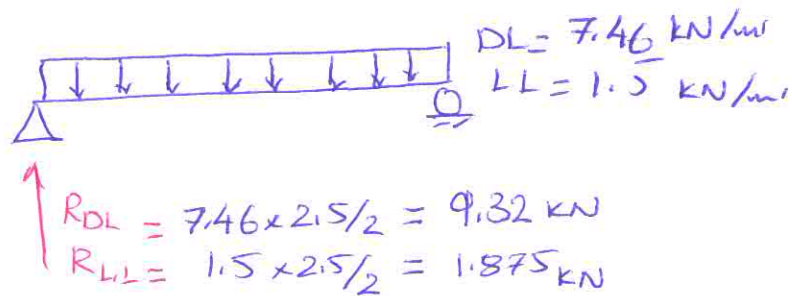 DL = 7.46 kN/m
LL = 1.5 kN/m
RDL = 7.46 x 2.5/2 = 9.32 kN
RL.L = 1.5 x 2.5/2 = 1.875 kN